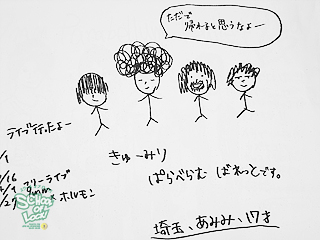 ただで
帰れると思うなよー
ライブ行ったよー
きゅーみり
ぱらべらむ ばれっとです。
フリーライブ
9mm × ホルモン
埼玉、あみみ、17才